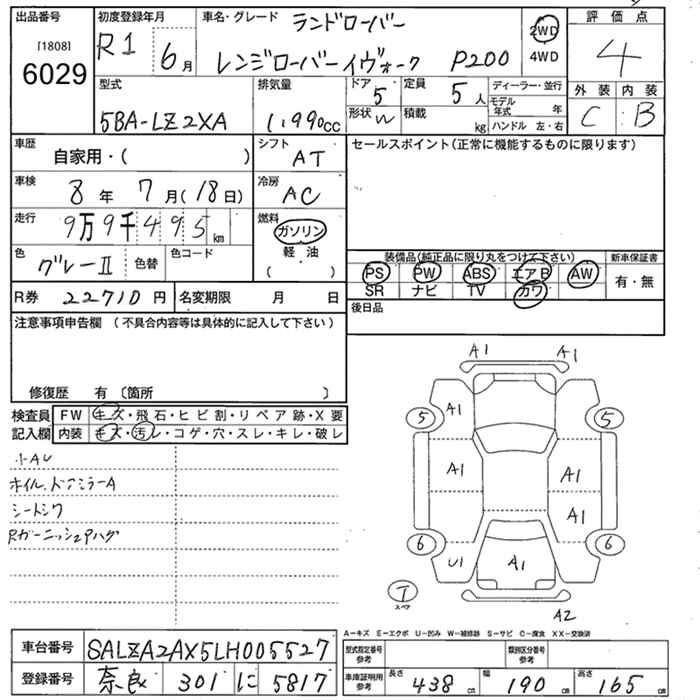 出品番号 初度登録年月 車名・グレード ランドローバー 2WD 評価点
[1808] R1 6月 レンジローバーイヴォーク P200 4WD 4
6029
型式 排気量 ドア 5 定員 5人 ディーラー・並行 外装 内装
5BA-LZ2XA 1,990cc 形状 W 積載 kg モデル年式 年 C B
ハンドル 左・右
車歴 自家用・( ) シフト AT セールスポイント(正常に機能するものに限ります)
車検 8年 7月(18日) 冷房 AC
走行 9万9千495km 燃料 ガソリン
軽油
( )
色 グレーII 色替 色コード 装備品(純正品に限り丸をつけて下さい) 新車保証書
PS PW ABS エアB AW 有・無
SR ナビ TV カワ
R券 22710円 名変期限 月 日 後日品
注意事項申告欄 (不具合内容等は具体的に記入して下さい)
修復歴 有 〔箇所 〕
検査員 FW キズ・飛石・ヒビ割・リペア跡・X要
記入欄 内装 キズ・汚レ・コゲ・穴・スレ・キレ・破レ
小AU
ホイル、ドアミラーA
シートシワ
Rガーニッシュアハグ
A1 A1
5 A1 5
A1 A1
A1
6 U1 A1 6
T
スペア
A2
A-キズ E-エクボ U-凹み W-補修跡 S-サビ C-腐食 XX-交換済
車台番号 SALZA2AX5LH005527 型式指定番号 参考 類別区分番号 参考
登録番号 奈良 301 に 5817 車庫証明用 参考 長さ 438cm 幅 190cm 高さ 165cm